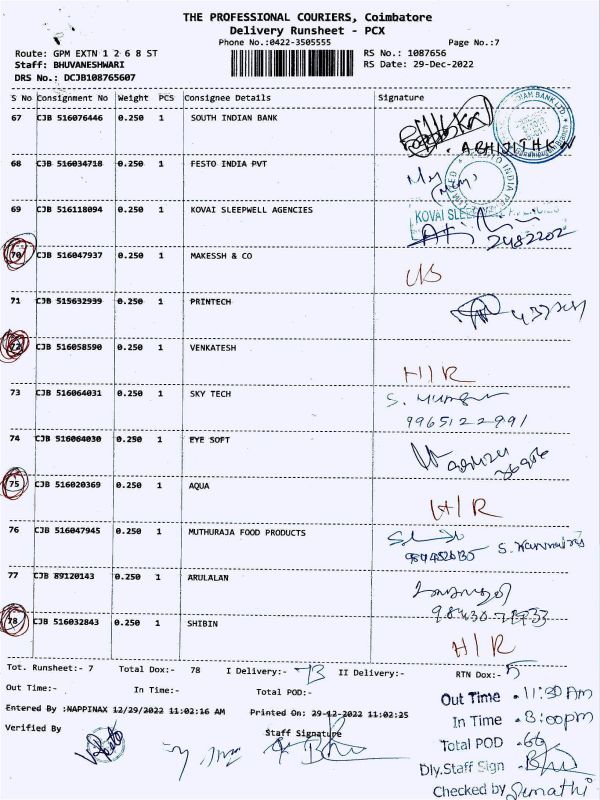 THE PROFESSIONAL COURIERS, Coimbatore
Delivery Runsheet - PCX
Phone No.:0422-3505555 Page No.:7
Route: GPM EXTN 1 2 6 8 ST RS No.: 1087656
Staff: BHUVANESHWARI RS Date: 29-Dec-2022
DRS No.: DCJB108765607
S No Consignment No Weight PCS Consignee Details Signature
67 CJB 516076446 0.250 1 SOUTH INDIAN BANK
ABHIJITH K N
68 CJB 516034718 0.250 1 FESTO INDIA PVT
69 CJB 516118094 0.250 1 KOVAI SLEEPWELL AGENCIES
2482202
70 CJB 516047937 0.250 1 MAKESSH & CO
71 CJB 515632939 0.250 1 PRINTECH
72 CJB 516058590 0.250 1 VENKATESH H/R
73 CJB 516064031 0.250 1 SKY TECH
9965122991
74 CJB 516064030 0.250 1 EYE SOFT
75 CJB 516020369 0.250 1 AQUA H/R
76 CJB 516047945 0.250 1 MUTHURAJA FOOD PRODUCTS
77 CJB 89120143 0.250 1 ARULALAN
78 CJB 516032843 0.250 1 SHIBIN H/R
Tot. Runsheet:- 7 Total Dox:- 78 I Delivery:- 73 II Delivery:- RTN Dox:- 5
Out Time:- In Time:- Total POD:-
Out Time 11:30 Am
Entered By :NAPPINAX 12/29/2022 11:02:16 AM Printed On: 29-12-2022 11:02:25
In Time 3:00pm
Verified By Staff Signature
Total POD 66
Dly.Staff Sign
Checked by Sumathi